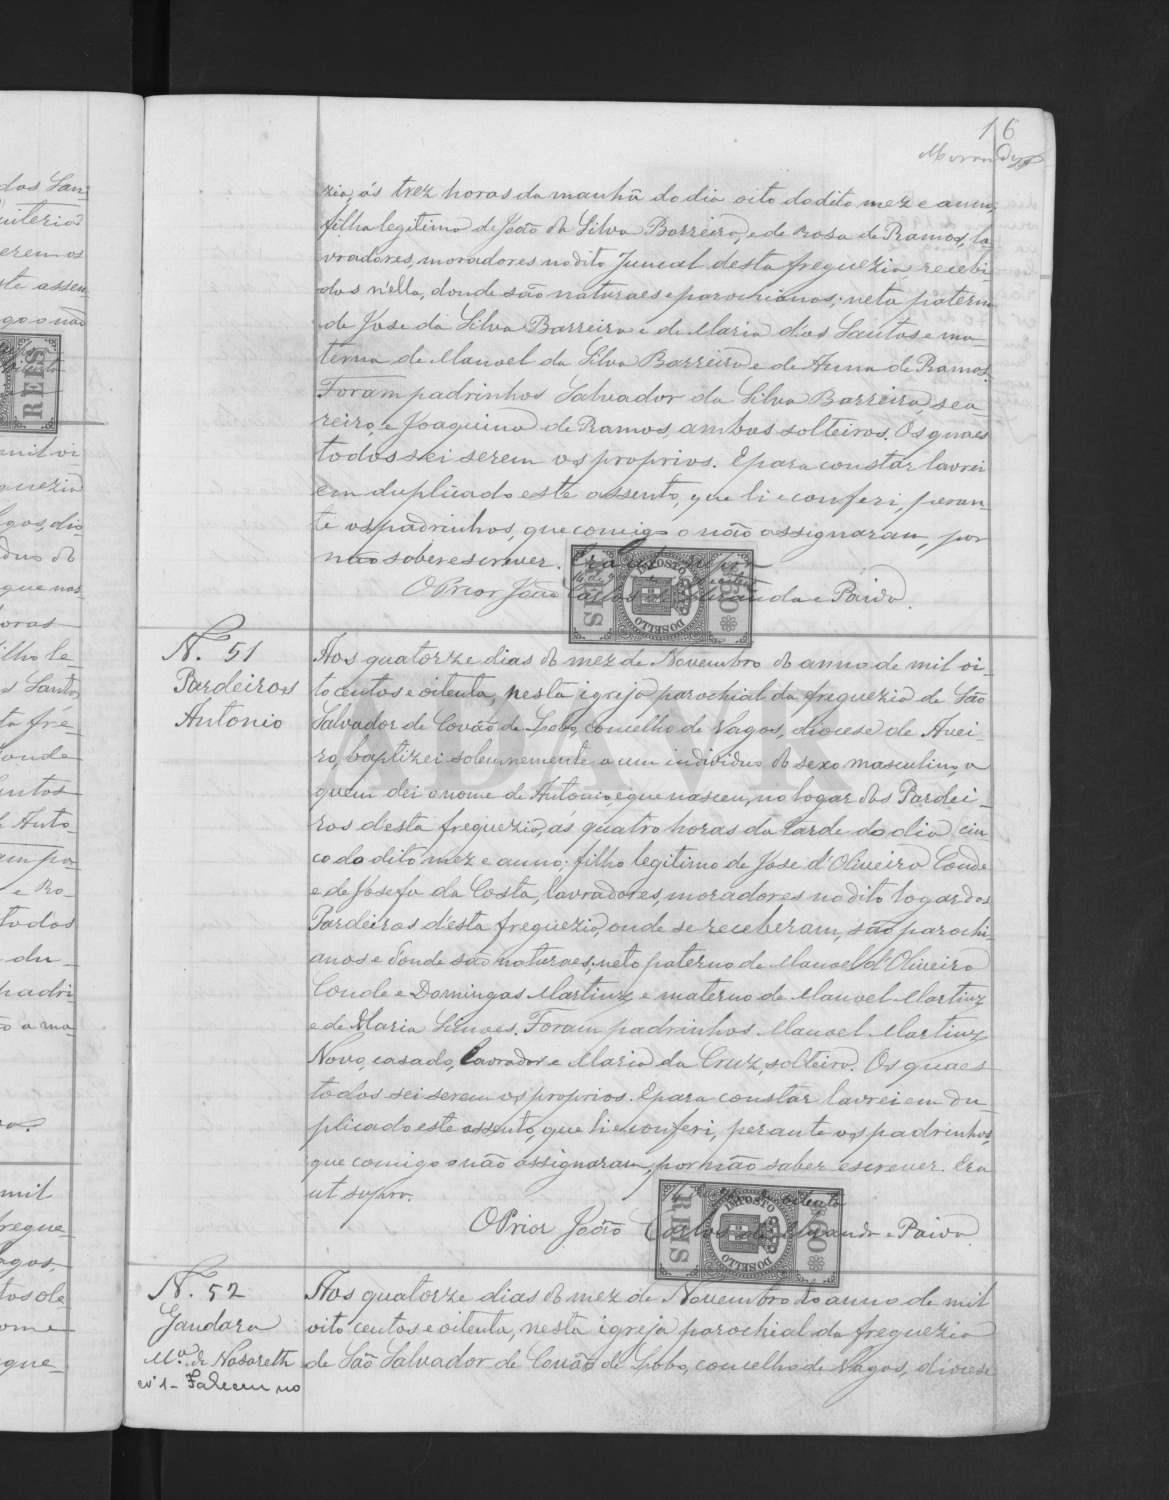 16
Miranda
zia, ás trez horas da manhã do dia oito do dito mez e anno,
filha legitima de João da Silva Barreiro, e de Rosa de Ramos, la-
vradores, moradores no dito Juncal desta freguezia, recebi-
dos n'ella, donde são naturaes e parochianos; neta paterna
de Jose da Silva Barreiro e de Maria dos Santos e ma-
terna de Manoel da Silva Barreiro e de Anna de Ramos.
Foram padrinhos Salvador da Silva Barreiro, sea-
reiro, e Joaquina de Ramos, ambos solteiros. Os quaes
todos sei serem os proprios. E para constar lavrei
em duplicado este assento, que li e conferi, peran-
te os padrinhos, que comigo o não assignaram, por
não saber escrever. Era ut supra
O Prior João Carlos de Miranda e Paiva.
IMPOSTO DO SELLO
REIS
60
N. 51
Pardeiros
Antonio
Aos quatorze dias do mez de Novembro do anno de mil oi-
tocentos e oitenta, nesta igreja parochial da freguezia de São
Salvador de Covão do Lobo, concelho de Vagos, diocese de Avei-
ro, baptizei solemnemente a um individuo do sexo masculino, a
quem dei o nome de Antonio, e que nasceu, no logar dos Pardei-
ros d'esta freguezia, ás quatro horas da tarde do dia cin-
co do dito mez e anno; filho legitimo de Jose d'Oliveira Conde
e de Josefa da Costa, lavradores, moradores no dito logar dos
Pardeiros d'esta freguezia, onde se receberam, são parochi-
anos e donde são naturaes; neto paterno de Manoel d'Oliveira
Conde e Domingas Martinz e materno de Manoel Martinz
e de Maria Simoes. Foram padrinhos Manoel Martinz
Novo, casado, lavrador e Maria da Cruz, solteira. Os quaes
todos sei serem os proprios. E para constar lavrei em du-
plicado este assento, que li e conferi, perante os padrinhos,
que comigo o não assignaram, por não saber escrever. Era
ut supra.
O Prior João Carlos de Miranda e Paiva
IMPOSTO DO SELLO
REIS
60
N. 52
Gandara
M.ª de Nasareth
Faleceu no
Aos quatorze dias do mez de Novembro do anno de mil
oito centos e oitenta, nesta igreja parochial da freguezia
de São Salvador de Covão do Lobo, concelho de Vagos, diocese